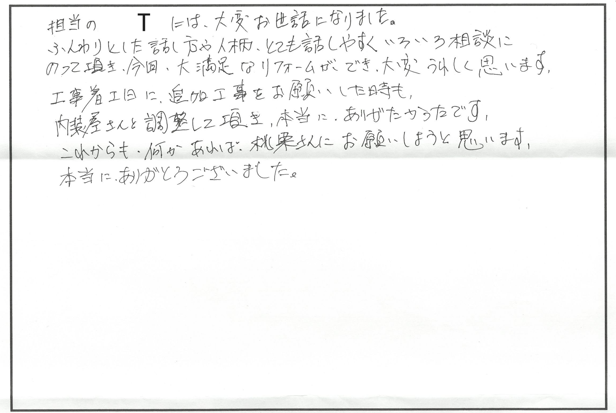 担当の T には、大変お世話になりました。
ふんわりとした話し方や人柄、とても話しやすくいろいろ相談に
のって頂き、今回、大満足なリフォームができ、大変うれしく思います。
工事着工日に、追加工事をお願いした時も、
内装屋さんと調整して頂き、本当に、ありがたかったです。
これからも、何かあれば、桃栗さんにお願いしようと思います。
本当に、ありがとうございました。